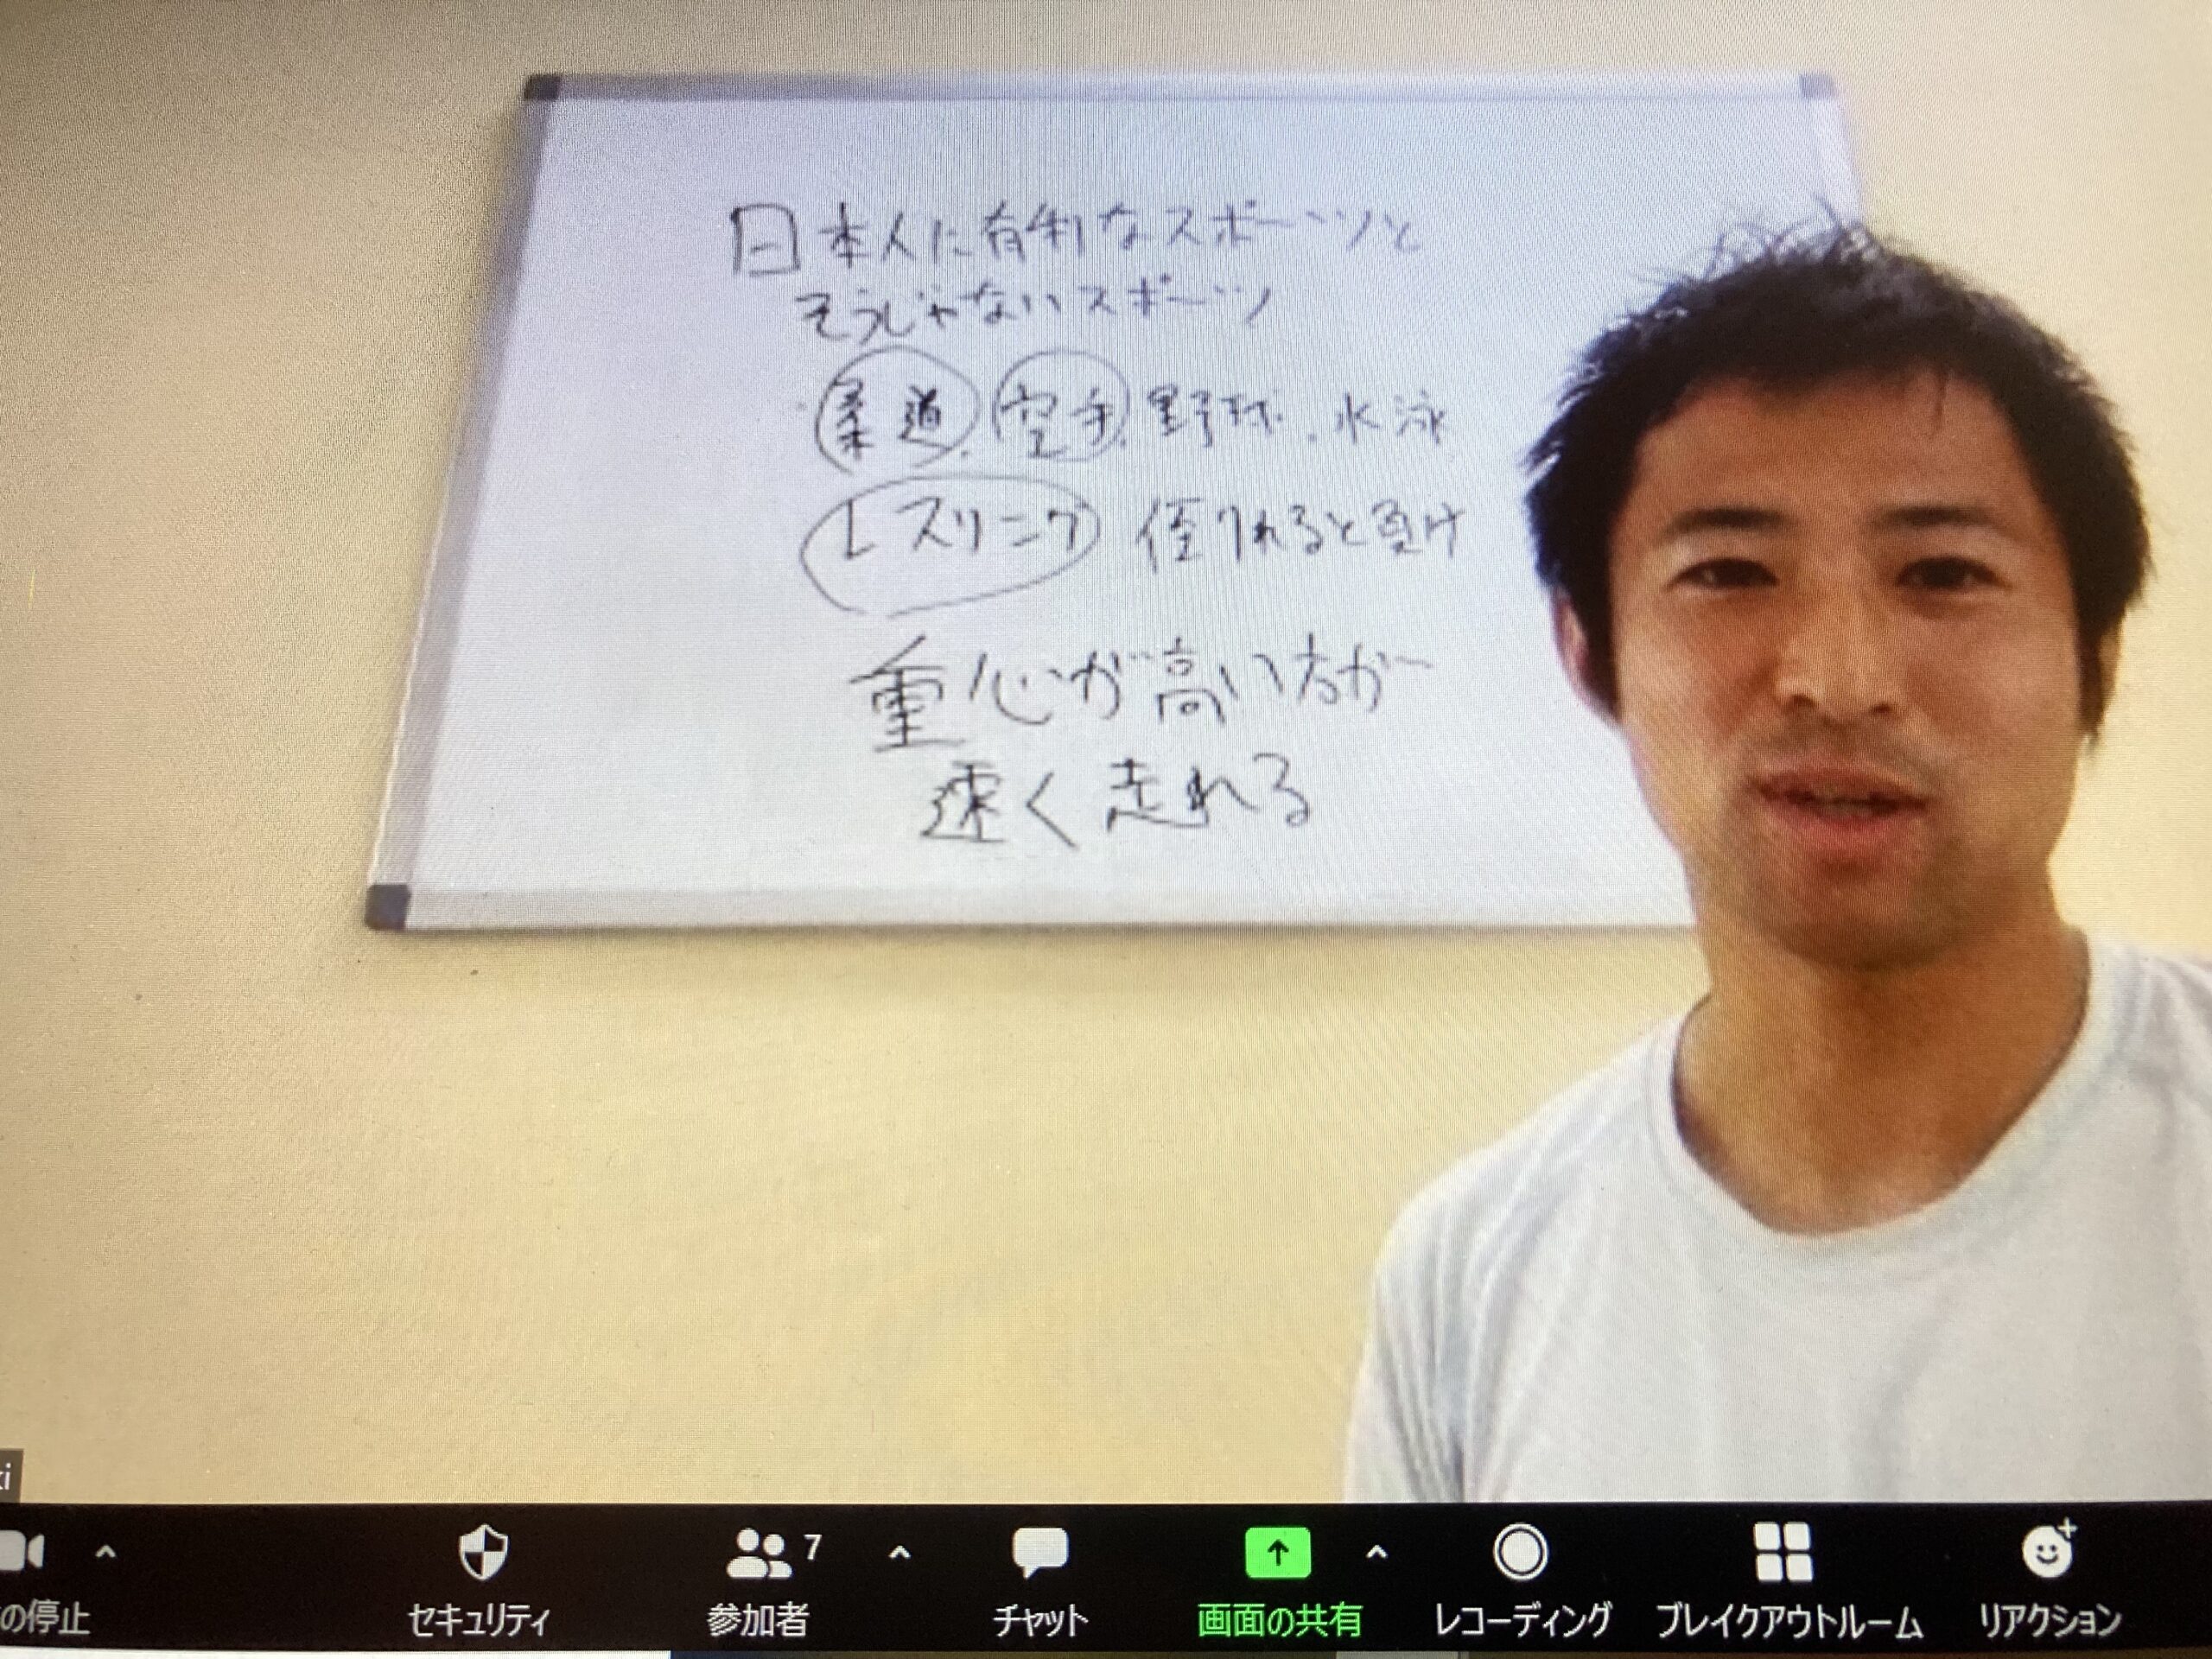 日本人に有利なスポーツと
そうじゃないスポーツ
柔道、空手、野球、水泳
レスリング 倒れると負け
重心が高い方が
速く走れる
ki
の停止
セキュリティ
参加者 7
チャット
画面の共有
レコーディング
ブレイクアウトルーム
リアクション